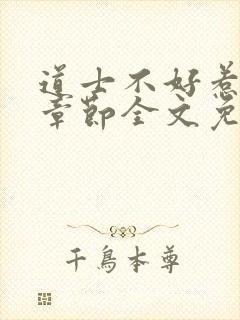 道士不好惹
章節全文免
千鳥本尊